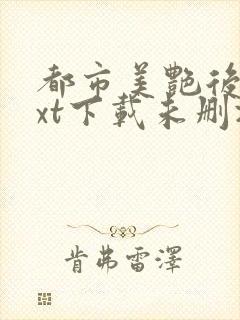 都市美艷後
xt下載未刪
肯弗雷澤